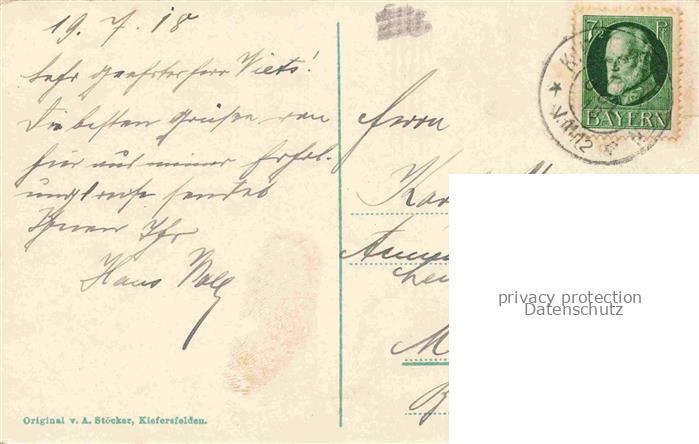 19. 7. 18
Sehr geehrter Herr Viets!
Die besten Grüße von
hier aus meiner Erhol-
ungsreise sendet
Ihnen Ihr
Hans
Herrn
7½ P
BAYERN
privacy protection
Datenschutz
Original v. A. Stöcker, Kiefersfelden.